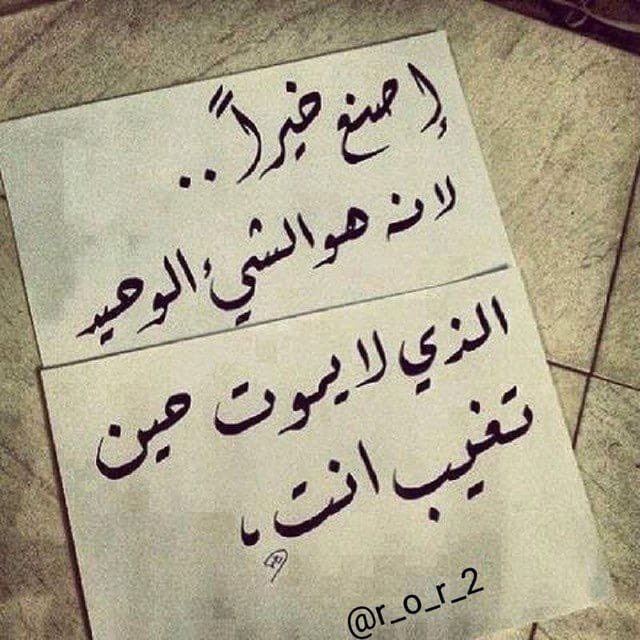 إصنع خيراً ..
لانه هو الشيء الوحيد
الذي لا يموت حين
تغيب انت،
@r_o_r_2